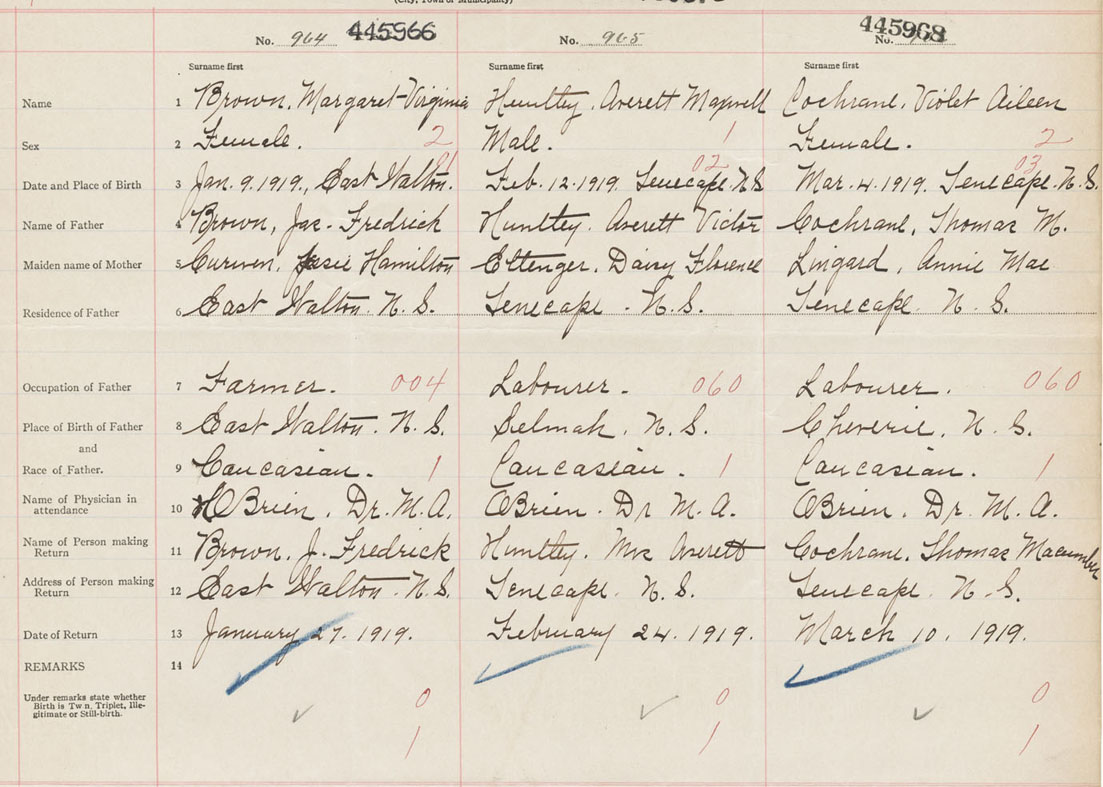 (City, Town or Municipality)
No. 964 445966 No. 965 445968 No.
Surname first Surname first Surname first
Name 1 Brown, Margaret-Virginia Huntley, Averett Maxwell Cochrane, Violet Aileen
Sex 2 Female. 2 Male. 1 Female. 2
Date and Place of Birth 3 Jan. 9. 1919., East Walton. 01 Feb. 12. 1919. Tenecape. N.S. 02 Mar. 4. 1919. Tenecape. N.S. 03
Name of Father 4 Brown, Jas. Fredrick Huntley. Averett Victor Cochrane, Thomas M.
Maiden name of Mother 5 Curwen, Hamilton Ettenger, Daisy Florence Lingard, Annie Mae
Residence of Father 6 East Walton. N.S. Tenecape. N.S. Tenecape. N.S.
Occupation of Father 7 Farmer. 004 Labourer. 060 Labourer. 060
Place of Birth of Father 8 East Walton. N.S. Selmah, N.S. Cheverie, N.S.
and
Race of Father. 9 Caucasian. 1 Caucasian. 1 Caucasian. 1
Name of Physician in
attendance 10 OBrien, Dr. M.A. OBrien. Dr M.A. OBrien, Dr. M.A.
Name of Person making
Return 11 Brown, J. Fredrick Huntley, Mrs Averett Cochrane, Thomas Macumber
Address of Person making
Return 12 East Walton. N.S. Tenecape. N.S. Tenecape. N.S.
Date of Return 13 January 27. 1919. February 24. 1919. March 10. 1919.
REMARKS 14
Under remarks state whether
Birth is Tw n, Triplet, Ille-
gitimate or Still-birth. 0 0 0
1 1 1